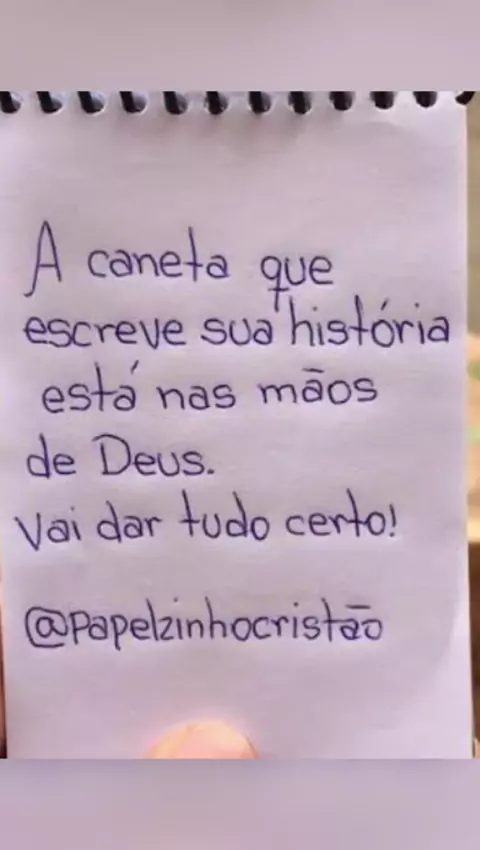 A caneta que
escreve sua história
está nas mãos
de Deus.
Vai dar tudo certo!
@papelzinhocristão